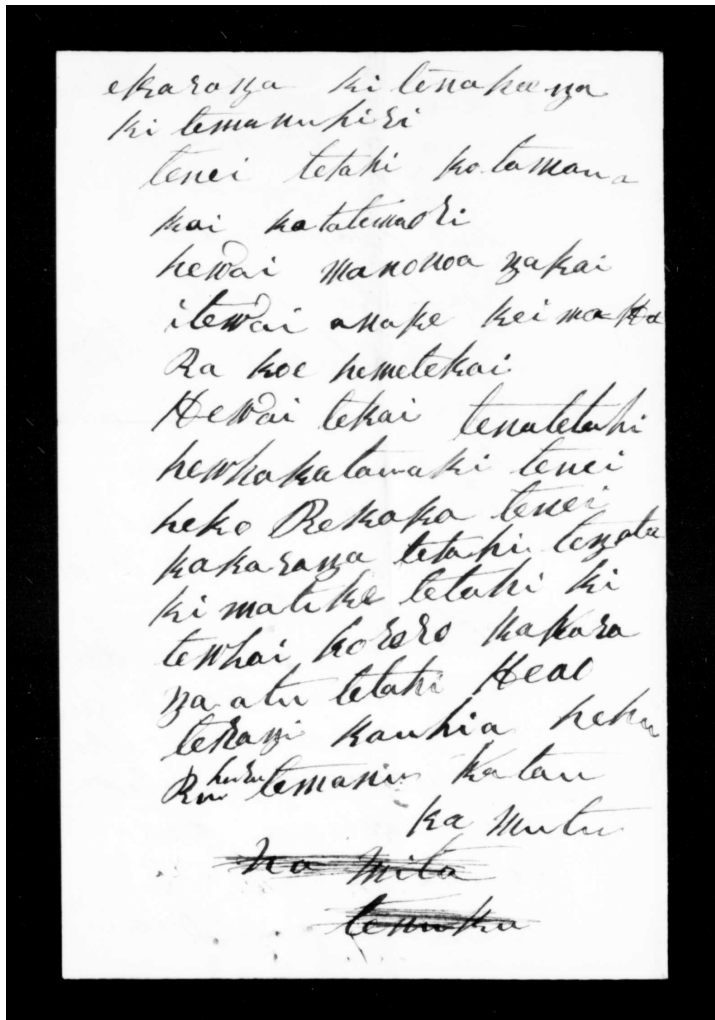 ekaraŋa ki tenakaeŋa
ki temanuhiri
tenei tetahi ko tamana
kai katatemaori
hewai manonoa ŋakai
itewai anake kei maha
Ra koe hemetekai
Hewai tekai tenatetahi
hewhakatauaki tenei
heko Rekoka tenei
kakaraŋa tetahi teŋata
ki matike tetahi ki
tewhai korero kakara
ŋa atu tetahi Heao
teraŋi kauhia hehu
Ruu huru temanu Katau
ka mutu
na mita
tenuku